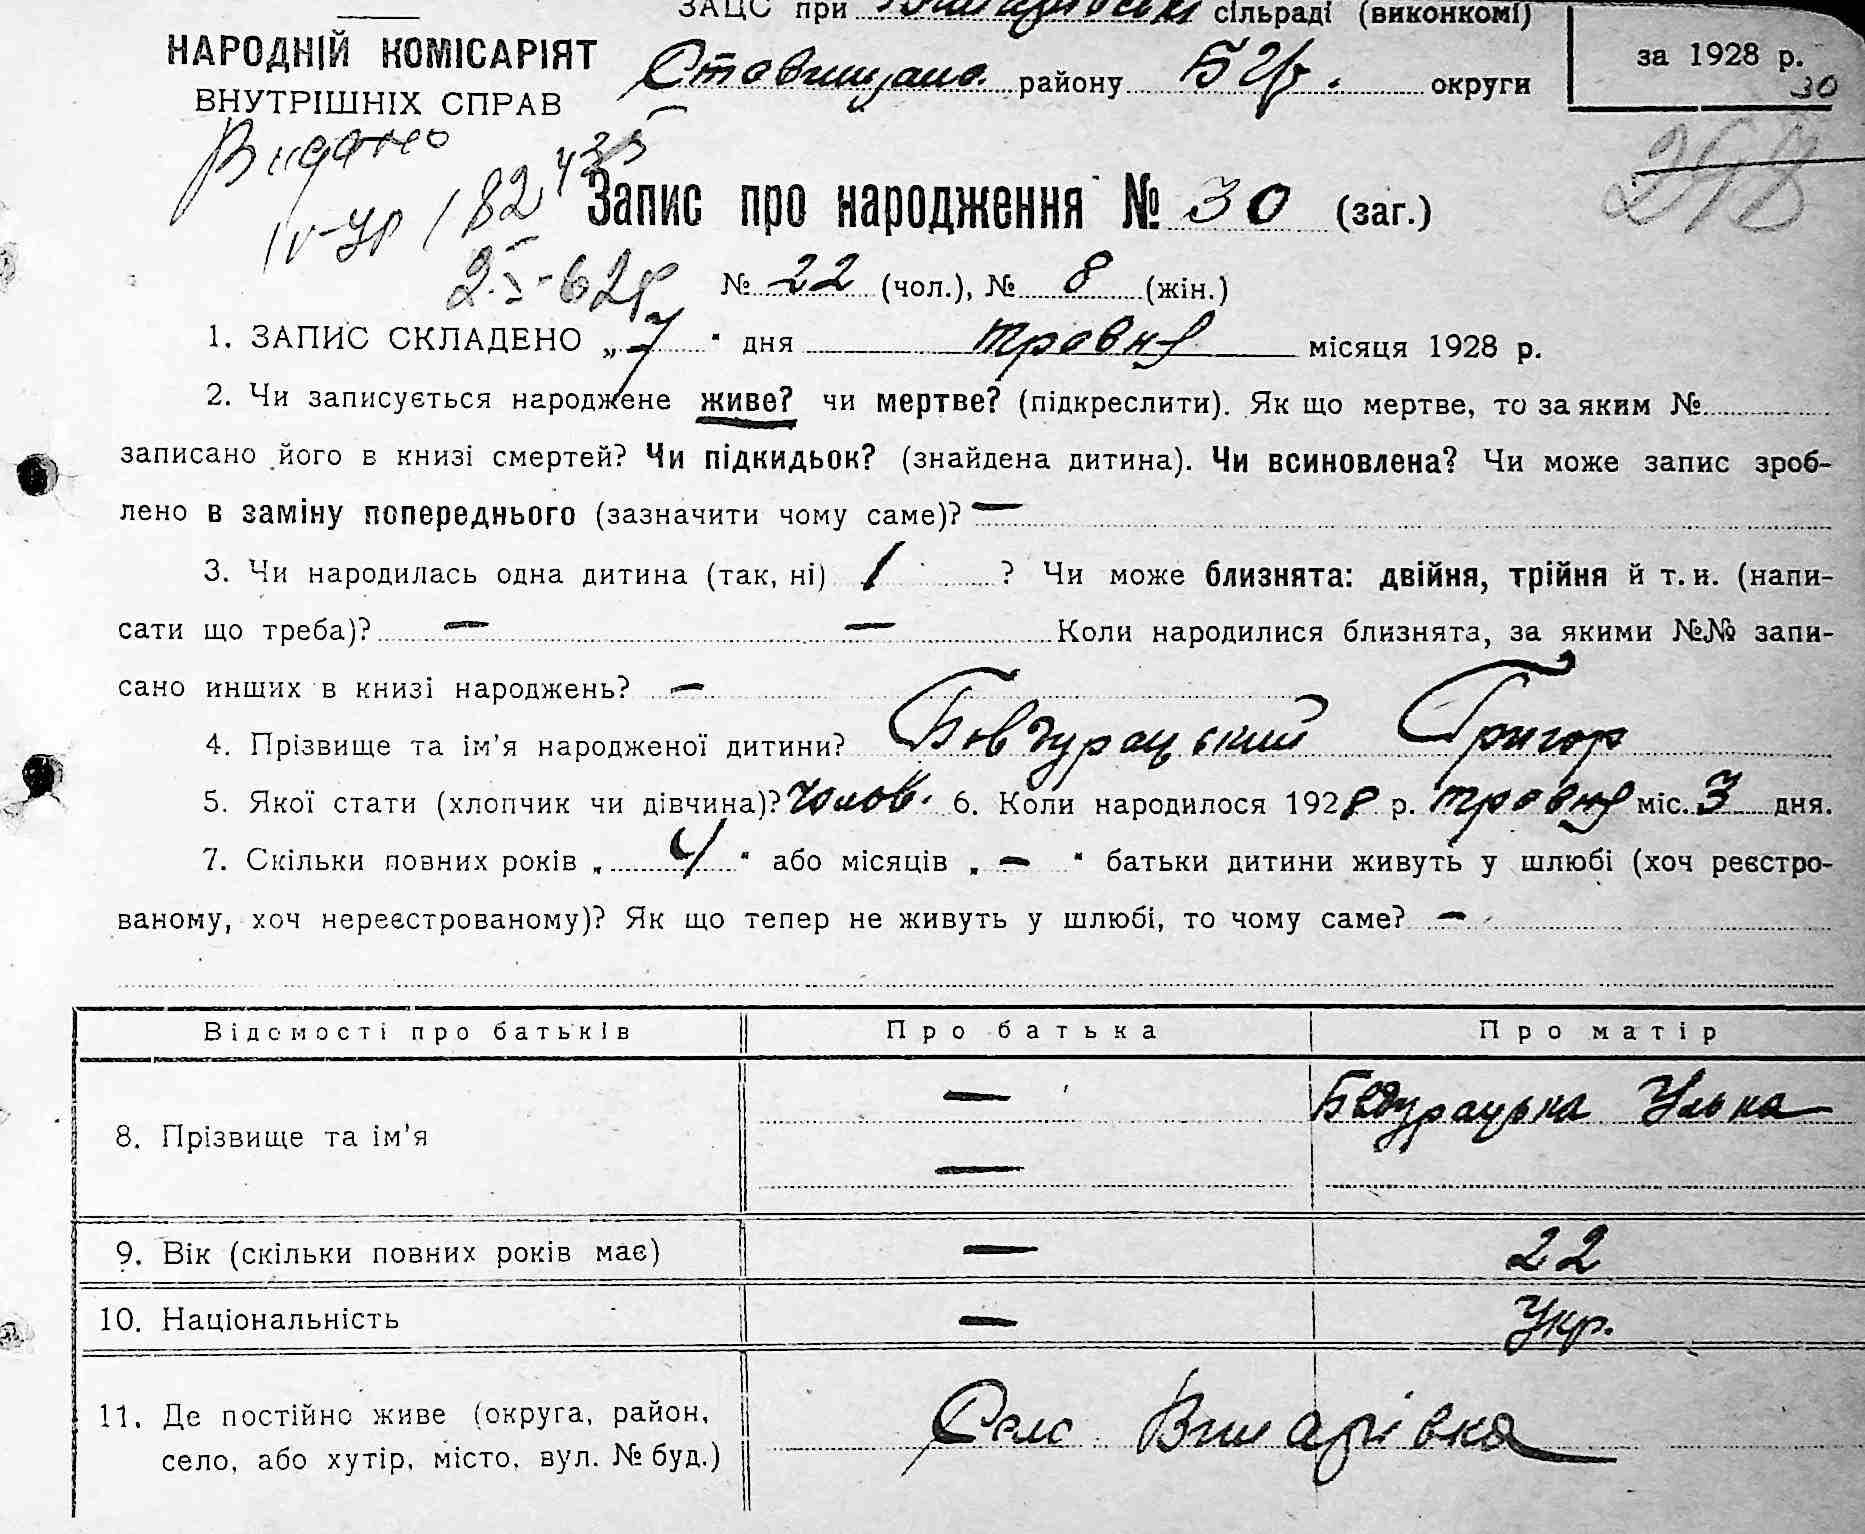 ЗАЦС при сільраді (виконкомі)
НАРОДНІЙ КОМІСАРІЯТ
ВНУТРІШНІХ СПРАВ
Ставищан. району Б Ц. округи
за 1928 р.
30
Видано
182
25-62р
Запис про народження № 30 (заг.)
№ 22 (чол.), № 8 (жін.)
1. ЗАПИС СКЛАДЕНО „7" дня травня місяця 1928 р.
2. Чи записується народжене живе? чи мертве? (підкреслити). Як що мертве, то за яким №
записано його в книзі смертей? Чи підкидьок? (знайдена дитина). Чи всиновлена? Чи може запис зроб-
лено в заміну попереднього (зазначити чому саме)? —
3. Чи народилась одна дитина (так, ні) 1 ? Чи може близнята: двійня, трійня й т. и. (напи-
сати що треба)? — — Коли народилися близнята, за якими №№ запи-
сано инших в книзі народжень? —
4. Прізвище та ім'я народженої дитини? Бовгурацький Григор
5. Якої стати (хлопчик чи дівчина)? чолов. 6. Коли народилося 1928 р. травня міс. 3 дня.
7. Скільки повних років „ 4 " або місяців „ — " батьки дитини живуть у шлюбі (хоч реєстро-
ваному, хоч нереєстрованому)? Як що тепер не живуть у шлюбі, то чому саме? —
Відомості про батьків Про батька Про матір
8. Прізвище та ім'я — — Улька
9. Вік (скільки повних років має) — 22
10. Національність — Укр.
11. Де постійно живе (округа, район,
село, або хутір, місто, вул. № буд.) Село